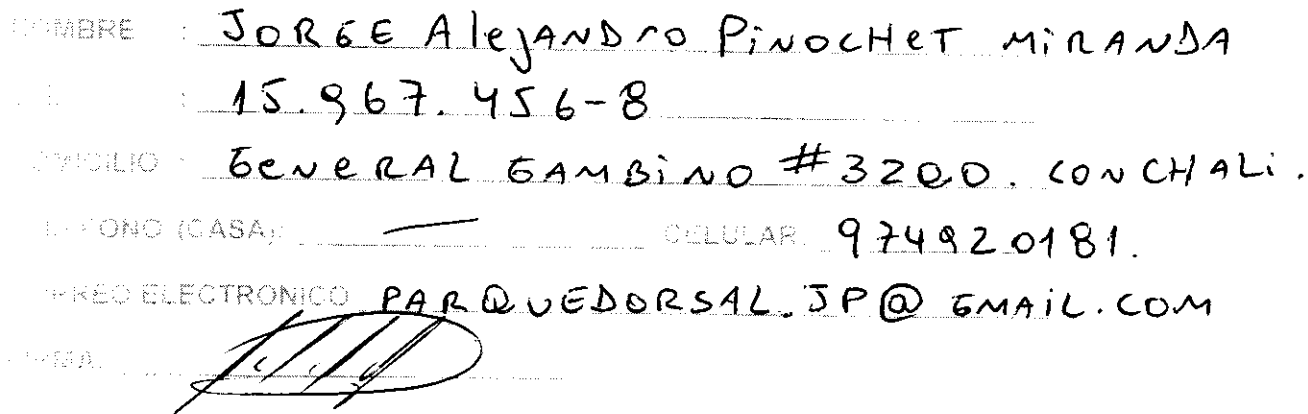 NOMBRE : JORGE AleJANDrO PiNOCHeT MiRANDA
: 15.967.456-8
DOMICILIO : GeNeRAL GAMBiNO #3200. CONCHALi.
TELEFONO (CASA): — CELULAR: 974920181.
CORREO ELECTRONICO PARQUEDORSAL.JP@GMAiL.COM
FIRMA: